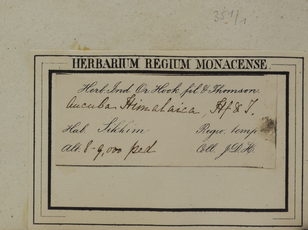 351/1
HERBARIUM REGIUM MONACENSE.
Herb. Ind. Or. Hook. fil. & Thomson.
Aucuba Himalaica, Hf & T.
Hab. Sikkim Regio temp.
Alt. 8-9,000 ped Coll. J.D.H.